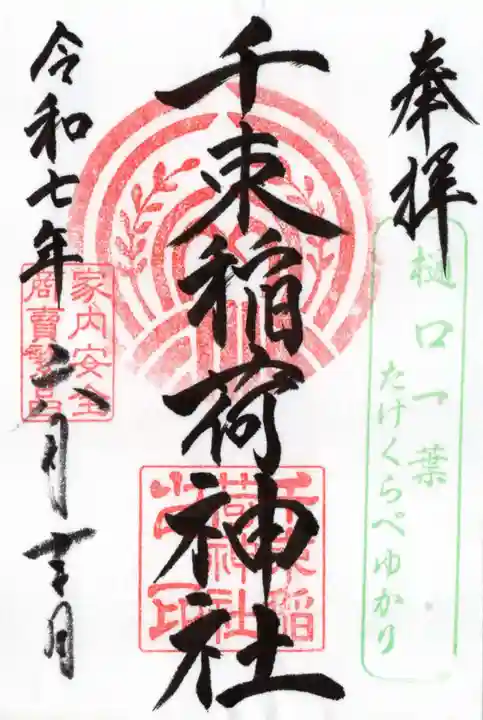 奉拝
樋口一葉
たけくらべゆかり
千束稲荷神社
千束稲
荷神社
之印
家内安全
商賣繁昌
令和七年六月